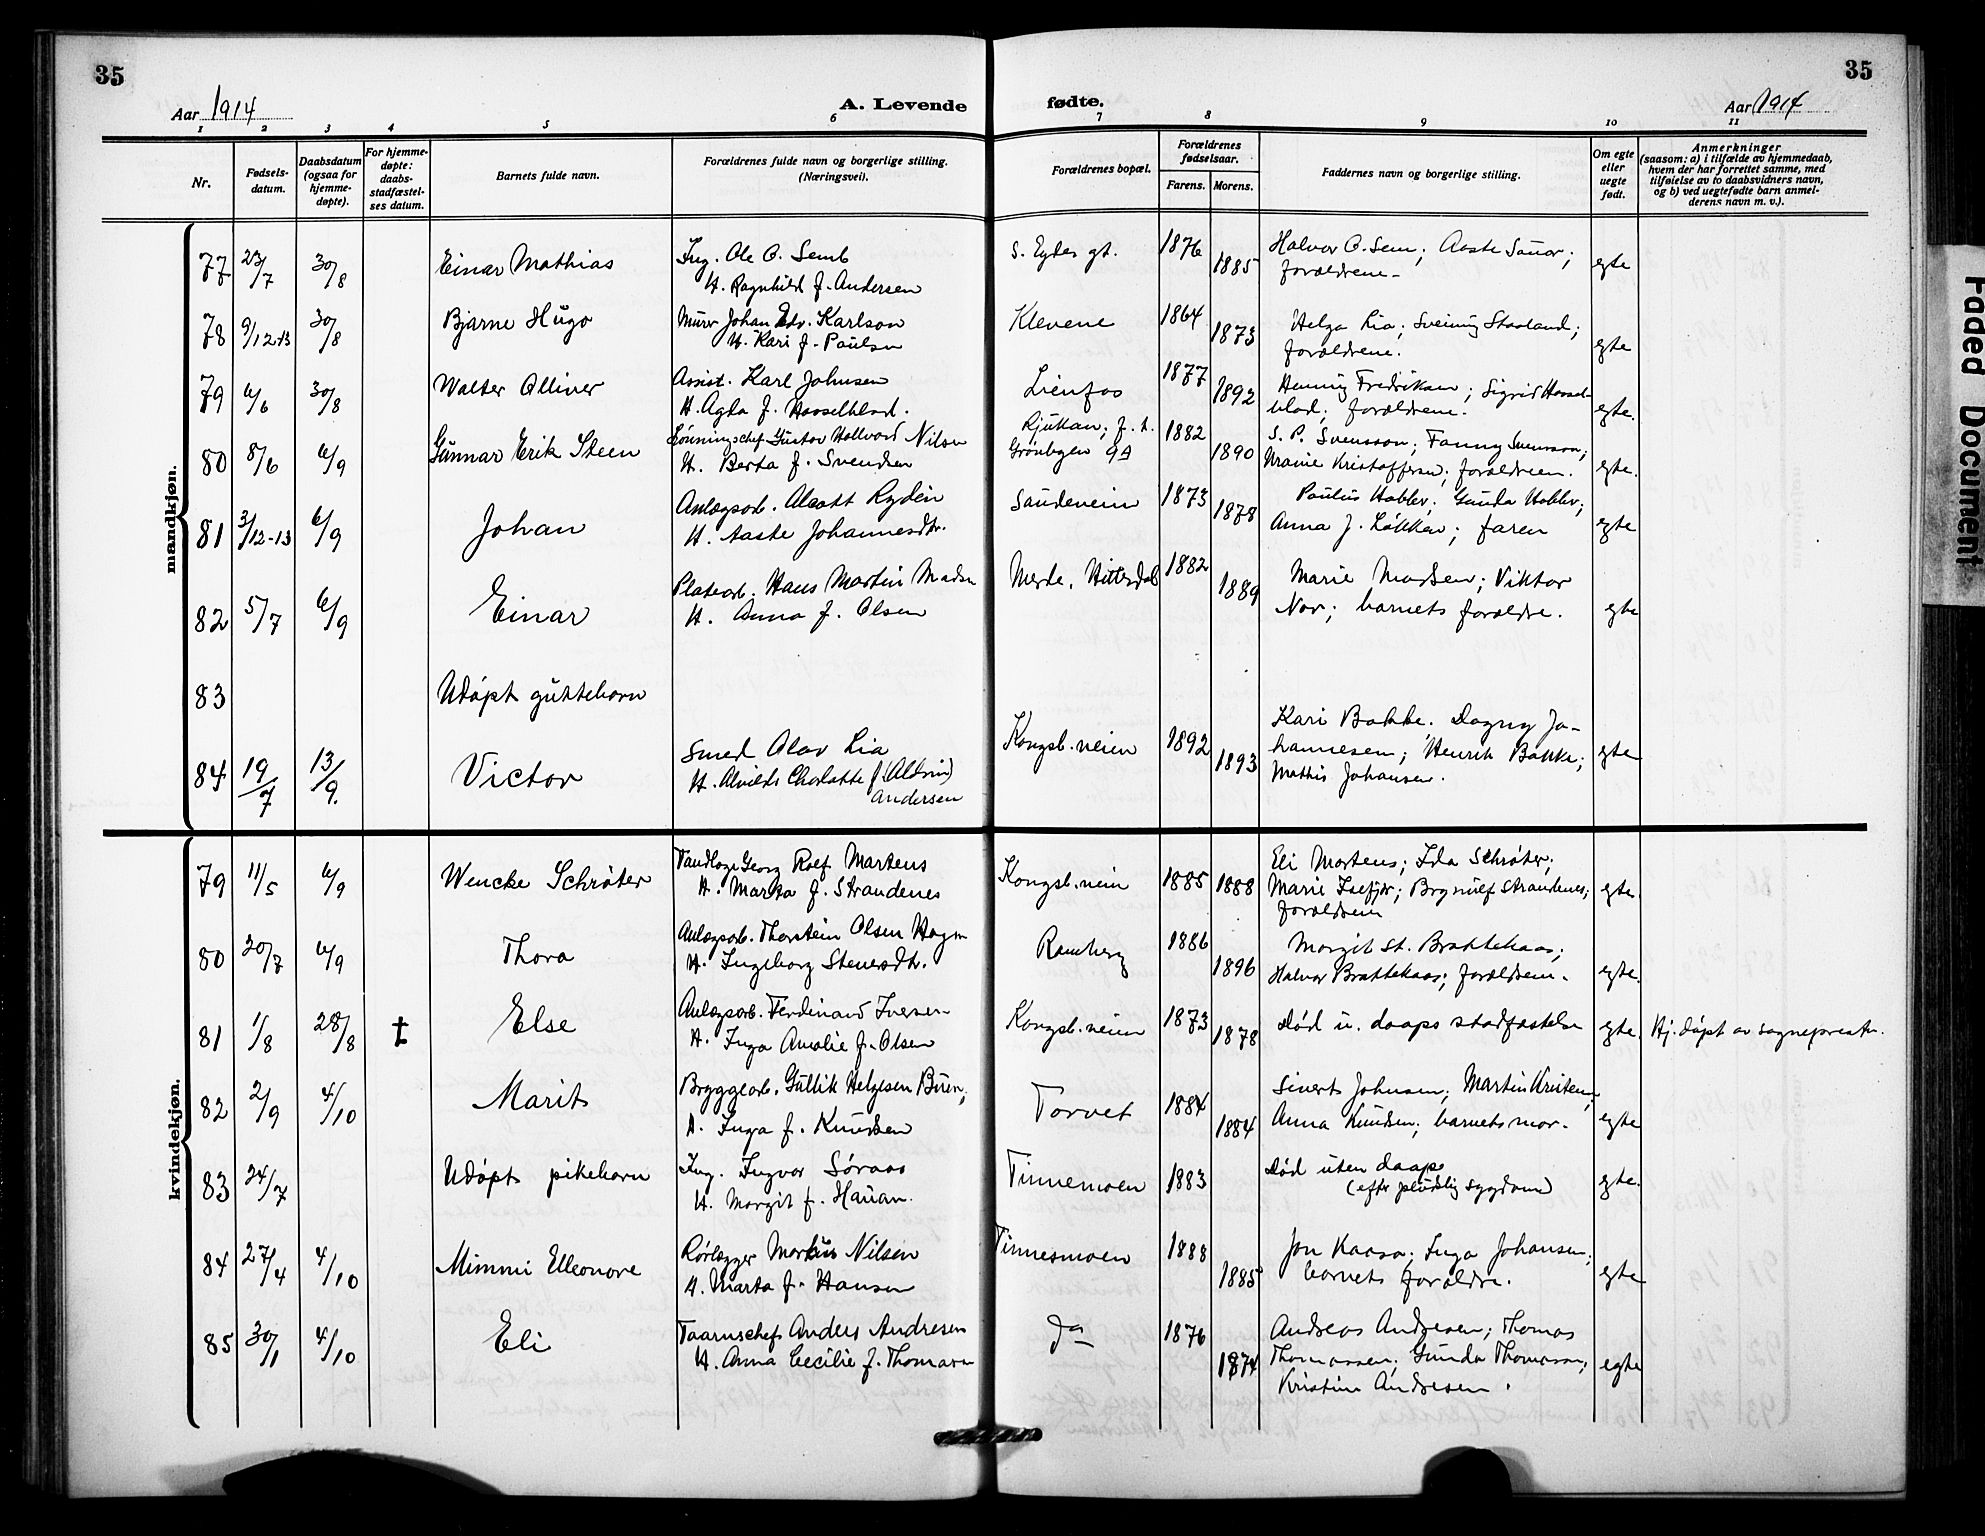 35
35
Aar 1914
A. Levende fødte.
Aar 1914
1 2 3 4 5 6 7 8 9 10 11
Nr.
Fødsels-
datum.
Daabsdatum
(ogsaa for
hjemme-
døpte).
For hjemme-
døpte:
daabs-
stadfæstel-
ses datum.
Barnets fulde navn.
Forældrenes fulde navn og borgerlige stilling.
(Næringsvei).
Forældrenes bopæl.
Forældrenes
fødselsaar.
Farens. Morens.
Faddernes navn og borgerlige stilling.
Om egte
eller
uegte
født.
Anmerkninger
(saasom: a) i tilfælde av hjemmedaab,
hvem der har forrettet samme, med
tilføielse av to daabsvidners navn,
og b) ved uegtefødte barn anmel-
derens navn m. v.).
mandkjøn.
77 23/7 30/8 Einar Mathias Ing. Ole O. Semb S. Eydes gt. 1876 Halvor O. Sem; Aaste Sauar;
H. Ragnhild f. Andersen 1885 forældrene - egte
78 9/12-13 30/8 Bjarne Hugo Murer Johan Edv. Karlson Klevene 1864 Helga Lia; Sveinung Staaland;
H. Kari f. Paulsen 1873 forældrene. egte
79 6/6 30/8 Walter Olliver Assist. Karl Johnsen Lienfos 1877 Henning Fredriksen; Sigrid Hassel-
H. Agda f. Hasselblad. 1892 blad; forældrene. egte.
80 8/6 6/9 Gunnar Erik Steen Lønningschef Gustav Hallvard Nilsen Rjukan; f. t. 1882 S. P. Svensson; Fanny Svensson;
H. Berta f. Svendsen Grønbygen 9A 1890 Kristoffersen; forældrene. egte.
81 3/12-13 6/9 Johan Anlægsarb. Rydén Saudeveien 1873 Paulus Gunda
H. Aaste Johannesdtr. 1878 Anna J. Løkken; faren egte
82 5/7 6/9 Einar Platearb. Hans Martin Madsen Hitterdal 1882 Marie Madsen; Viktor
H. Anna f. Olsen 1889 Nor; barnets forældre. egte
83 Udøpt guttebarn
84 19/7 13/9. Victor Smed Olav Lia Kongsb.veien 1892 Kari Bakke; Dagny Jo-
H. Alvilde Charlotte f. (Aldrin) 1893 hannesen; Henrik Bakke; egte
Andersen Mathis Johansen.
kvindekjøn.
79 11/5 6/9 Wencke Schrøter Tandlæge Georg Rolf Martens Kongsb.veien 1885 Eli Martens; Ida Schrøter;
H. Marta f. Strandenes 1888 Marie Isefjær; Brynulf Strandenes; egte.
forældrene
80 20/7 6/9 Thora Anlægsarb. Thorstein Olsen Hagen Ramberg 1886 Margit St. Brattekaas;
H. Ingeborg Stenersdtr. 1896 Halvor Brattekaas; forældrene. egte.
81 1/8 28/8 ‡ Else Anlægsarb. Ferdinand Iversen Kongsb.veien 1873 Død u. daaps stadfæstelse egte. Hj. døpt av sognepresten.
H. Inga Amalie f. Olsen 1878
82 2/9 4/10 Marit Bryggearb. Gullik Helgesen Buen; Torvet 1884 Sivert Johnsen; Martin Kristens;
H. Inga f. Knudsen 1884 Anna Knudsen; barnets mor. egte
83 24/7 Udøpt pikebarn Ing. Ingvar Søraas Tinnemoen 1883 Død uten daaps
H. Margit f. Hauan. (efter pludslig sygdom) egte.
84 27/4 4/10 Mimmi Elleonore Rørlægger Markus Nilsen Tinnesmoen 1888 Jon Kaasa; Inga Johansen;
H. Marta f. Hansen 1885 barnets forældre. egte
85 30/1 4/10 Eli Taarnschef Anders Andresen Do 1876 Andreas Andresen; Thomas
H. Anna Cecilie f. Thomasen 1874 Thomassen; Gunda Thomassen; egte
Kristine Andresen.
Faded Document